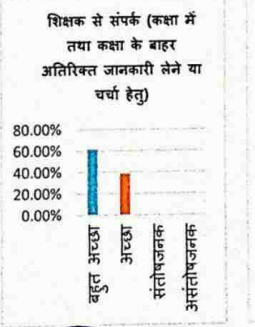 शिक्षक से संपर्क (कक्षा में
तथा कक्षा के बाहर
अतिरिक्त जानकारी लेने या
चर्चा हेतु)
80.00%
60.00%
40.00%
20.00%
0.00%
बहुत अच्छा
अच्छा
संतोषजनक
असंतोषजनक